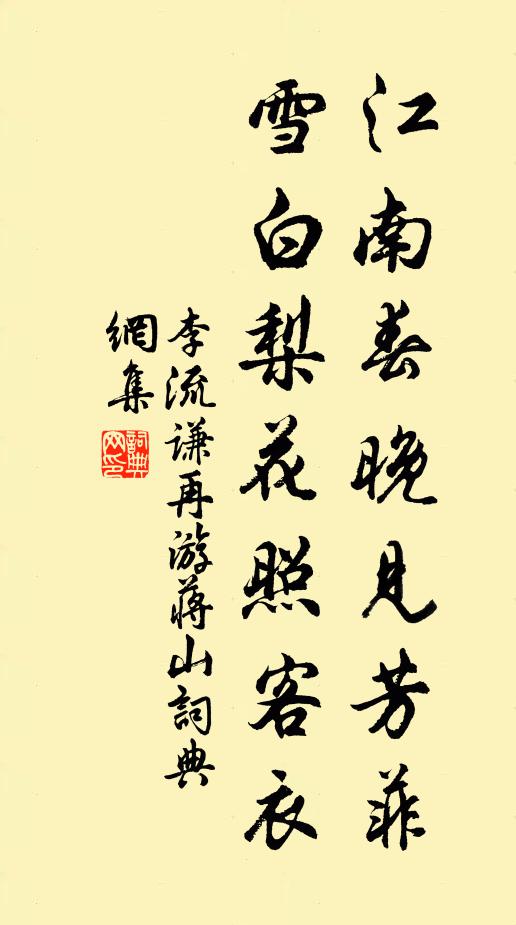 江南春晚見芳菲
雪白梨花照客衣
李流謙再游蔣山詞典
網集
詞典網印